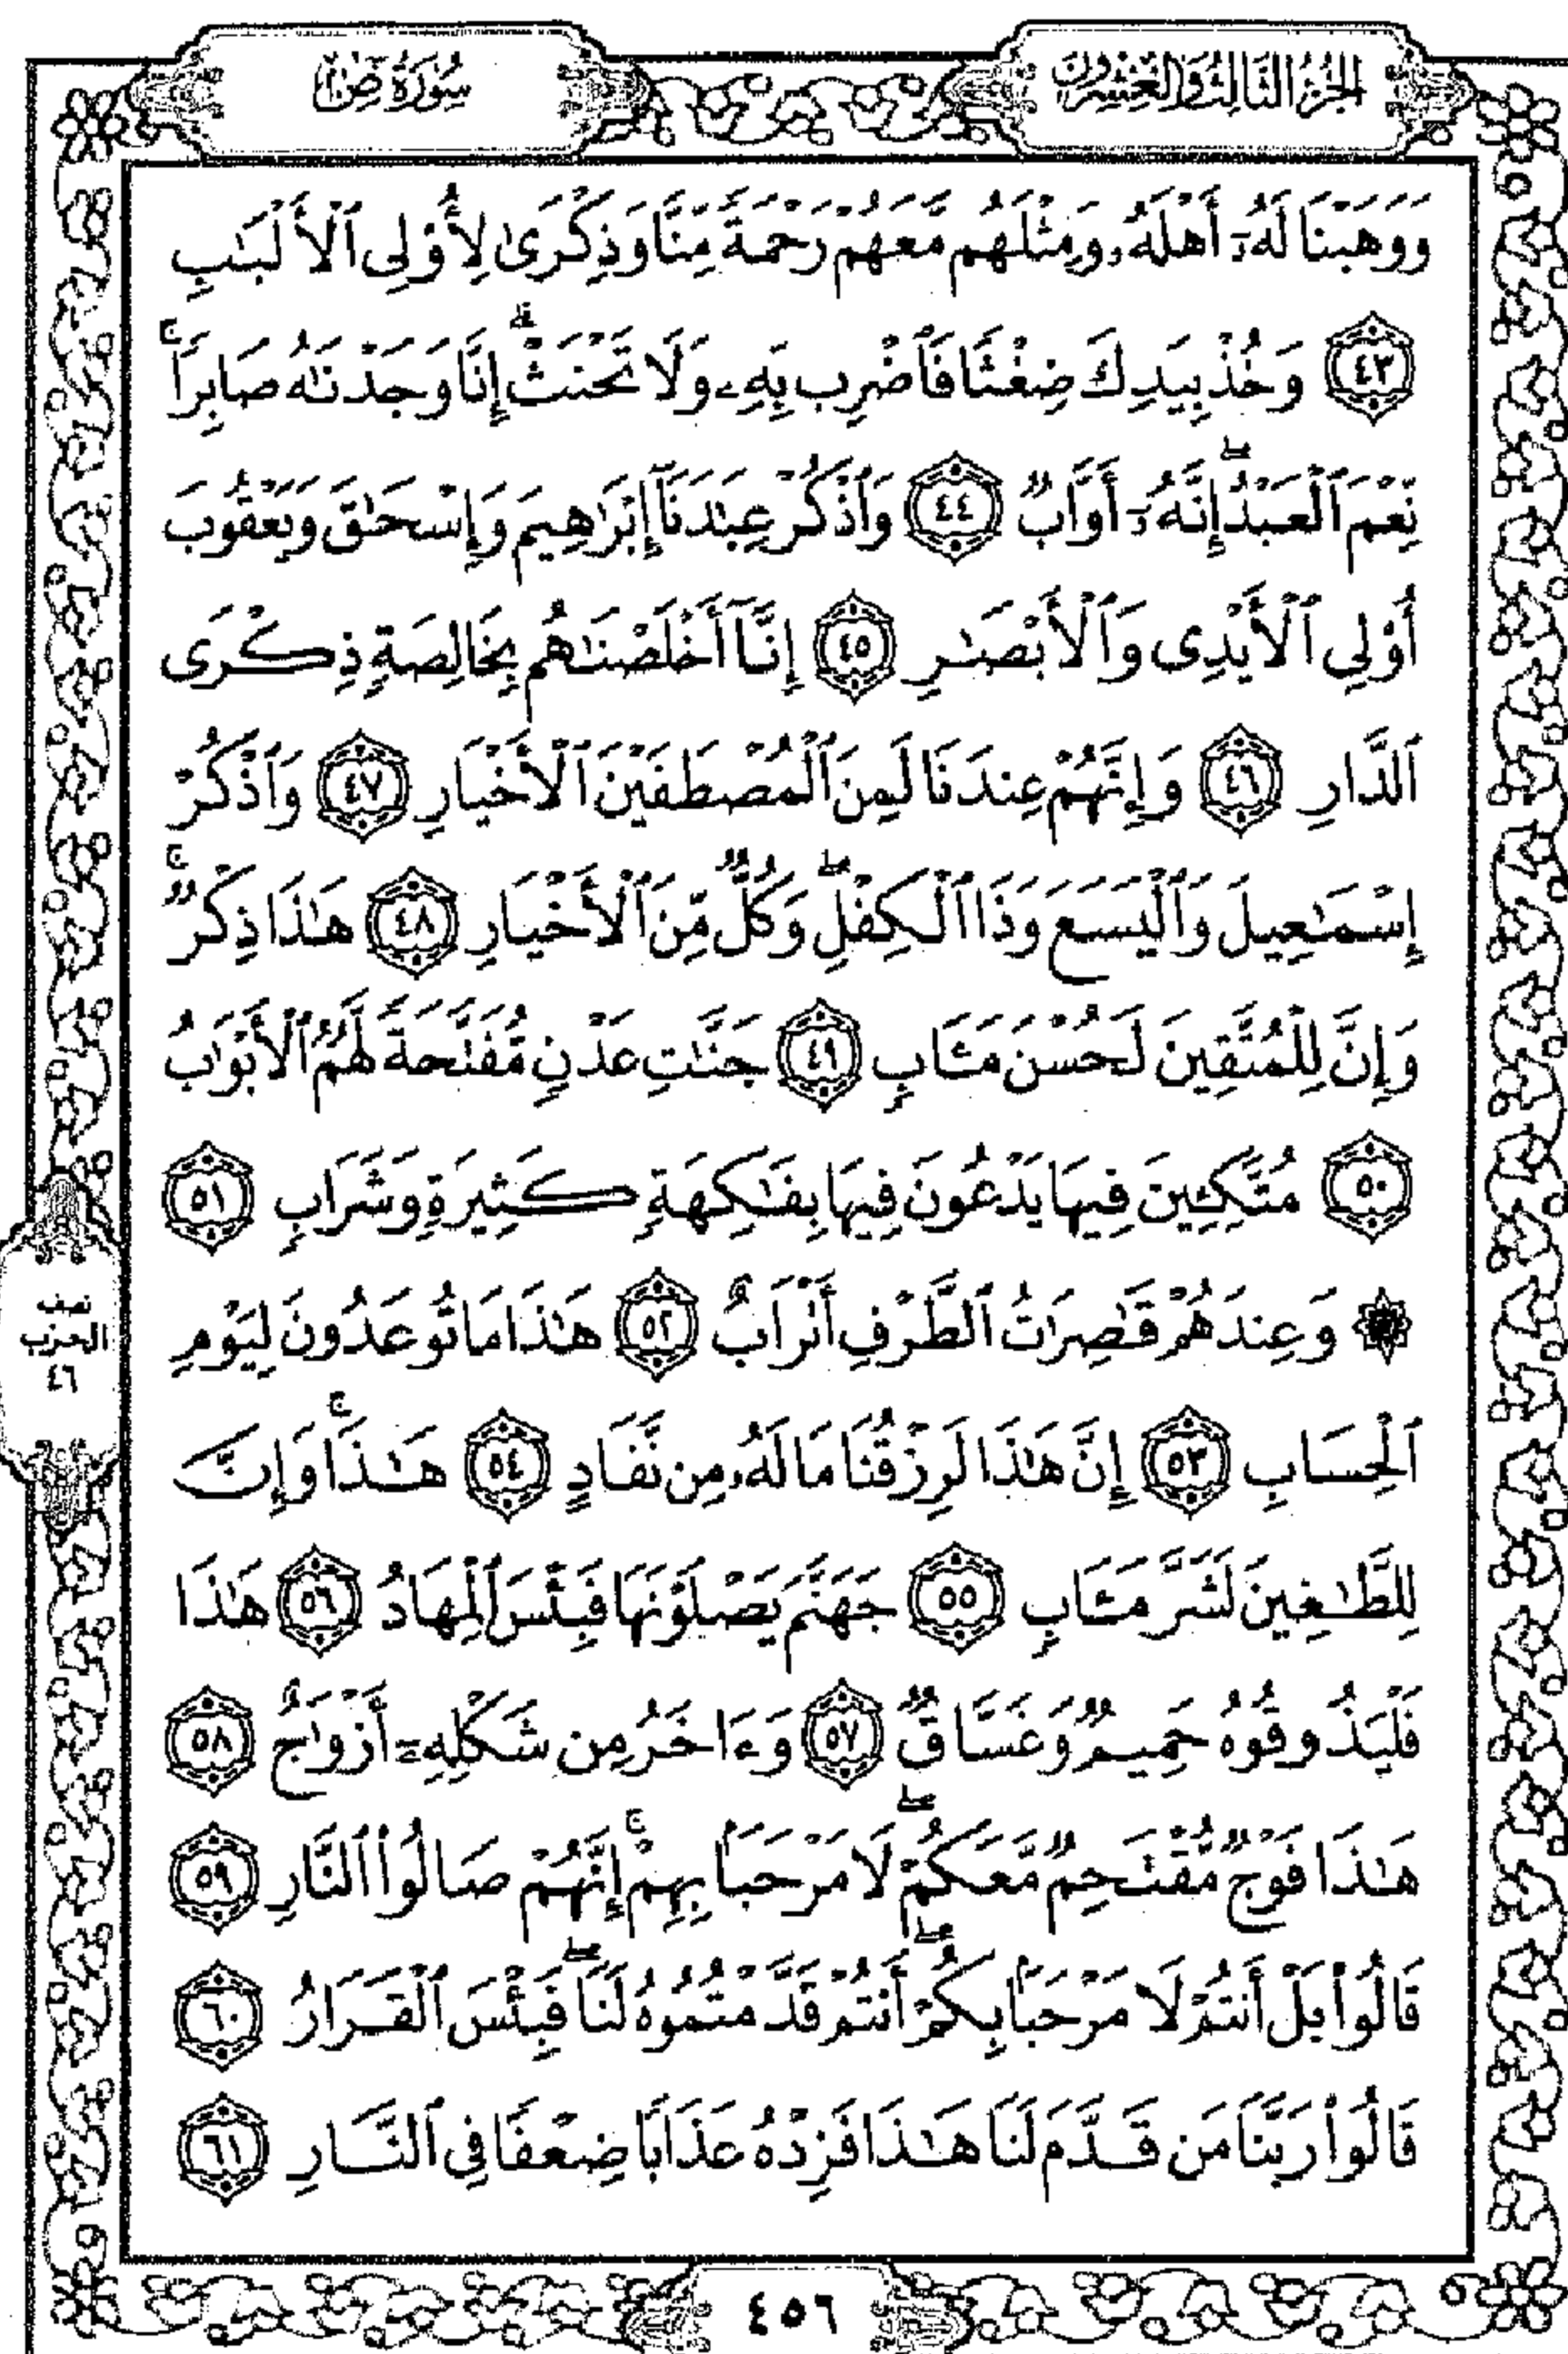 الجزء الثالث والعشرون
سورة ص
وَوَهَبْنَا لَهُۥٓ أَهْلَهُۥ وَمِثْلَهُم مَّعَهُمْ رَحْمَةً مِّنَّا وَذِكْرَىٰ لِأُو۟لِى ٱلْأَلْبَـٰبِ
٤٣ وَخُذْ بِيَدِكَ ضِغْثًا فَٱضْرِب بِّهِۦ وَلَا تَحْنَثْ ۗ إِنَّا وَجَدْنَـٰهُ صَابِرًا ۚ
نِّعْمَ ٱلْعَبْدُ ۖ إِنَّهُۥٓ أَوَّابٌ ٤٤ وَٱذْكُرْ عِبَـٰدَنَآ إِبْرَٰهِيمَ وَإِسْحَـٰقَ وَيَعْقُوبَ
أُو۟لِى ٱلْأَيْدِى وَٱلْأَبْصَـٰرِ ٤٥ إِنَّآ أَخْلَصْنَـٰهُم بِخَالِصَةٍ ذِكْرَى
ٱلدَّارِ ٤٦ وَإِنَّهُمْ عِندَنَا لَمِنَ ٱلْمُصْطَفَيْنَ ٱلْأَخْيَارِ ٤٧ وَٱذْكُرْ
إِسْمَـٰعِيلَ وَٱلْيَسَعَ وَذَا ٱلْكِفْلِ ۖ وَكُلٌّ مِّنَ ٱلْأَخْيَارِ ٤٨ هَـٰذَا ذِكْرٌ ۚ
وَإِنَّ لِلْمُتَّقِينَ لَحُسْنَ مَـَٔابٍ ٤٩ جَنَّـٰتِ عَدْنٍ مُّفَتَّحَةً لَّهُمُ ٱلْأَبْوَٰبُ
٥٠ مُتَّكِـِٔينَ فِيهَا يَدْعُونَ فِيهَا بِفَـٰكِهَةٍ كَثِيرَةٍ وَشَرَابٍ ٥١
۞ وَعِندَهُمْ قَـٰصِرَٰتُ ٱلطَّرْفِ أَتْرَابٌ ٥٢ هَـٰذَا مَا تُوعَدُونَ لِيَوْمِ
ٱلْحِسَابِ ٥٣ إِنَّ هَـٰذَا لَرِزْقُنَا مَا لَهُۥ مِن نَّفَادٍ ٥٤ هَـٰذَا ۚ وَإِنَّ
لِلطَّـٰغِينَ لَشَرَّ مَـَٔابٍ ٥٥ جَهَنَّمَ يَصْلَوْنَهَا فَبِئْسَ ٱلْمِهَادُ ٥٦ هَـٰذَا
فَلْيَذُوقُوهُ حَمِيمٌ وَغَسَّاقٌ ٥٧ وَءَاخَرُ مِن شَكْلِهِۦٓ أَزْوَٰجٌ ٥٨
هَـٰذَا فَوْجٌ مُّقْتَحِمٌ مَّعَكُمْ ۖ لَا مَرْحَبًۢا بِهِمْ ۚ إِنَّهُمْ صَالُوا۟ ٱلنَّارِ ٥٩
قَالُوا۟ بَلْ أَنتُمْ لَا مَرْحَبًۢا بِكُمْ ۖ أَنتُمْ قَدَّمْتُمُوهُ لَنَا ۖ فَبِئْسَ ٱلْقَرَارُ ٦٠
قَالُوا۟ رَبَّنَا مَن قَدَّمَ لَنَا هَـٰذَا فَزِدْهُ عَذَابًا ضِعْفًا فِى ٱلنَّارِ ٦١
نصف
الحزب
٤٦
٤٥٦